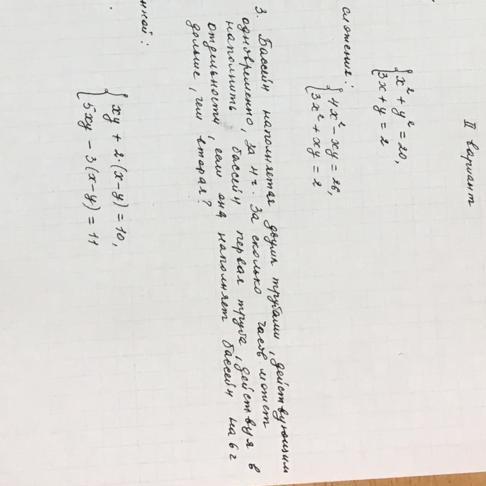 II вариант
{ x² + y² = 20,
3x + y = 2
сложения:
{ 4x² - xy = 26,
3x² + xy = 2
3. Бассейн наполняется двумя трубами, действующими
одновременно, за 4 ч. За сколько часов может
наполнить бассейн первая труба, действуя в
отдельности, если она наполняет бассейн на 6 ч
дольше, чем вторая?
нной:
{ xy + 2·(x-y) = 10,
5xy - 3(x-y) = 11